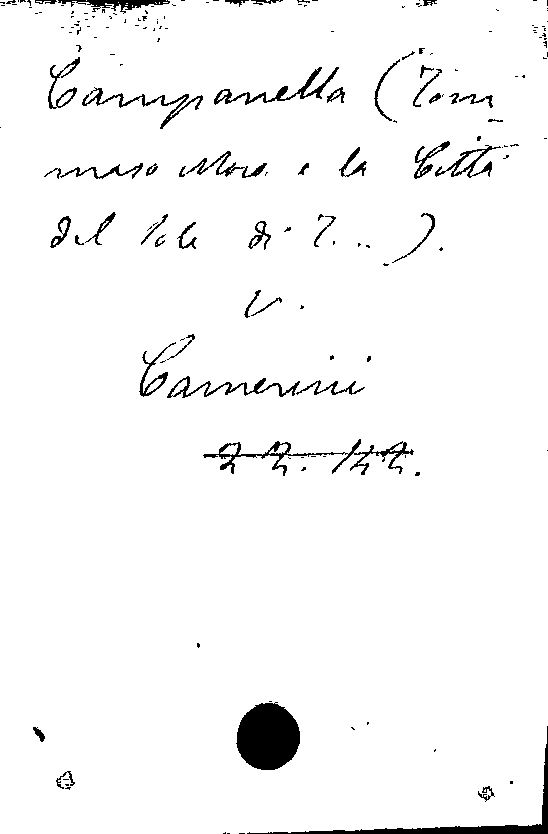 Campanella (Tom
maso Moro e la Città
del Sole di T...).
v.
Camerini